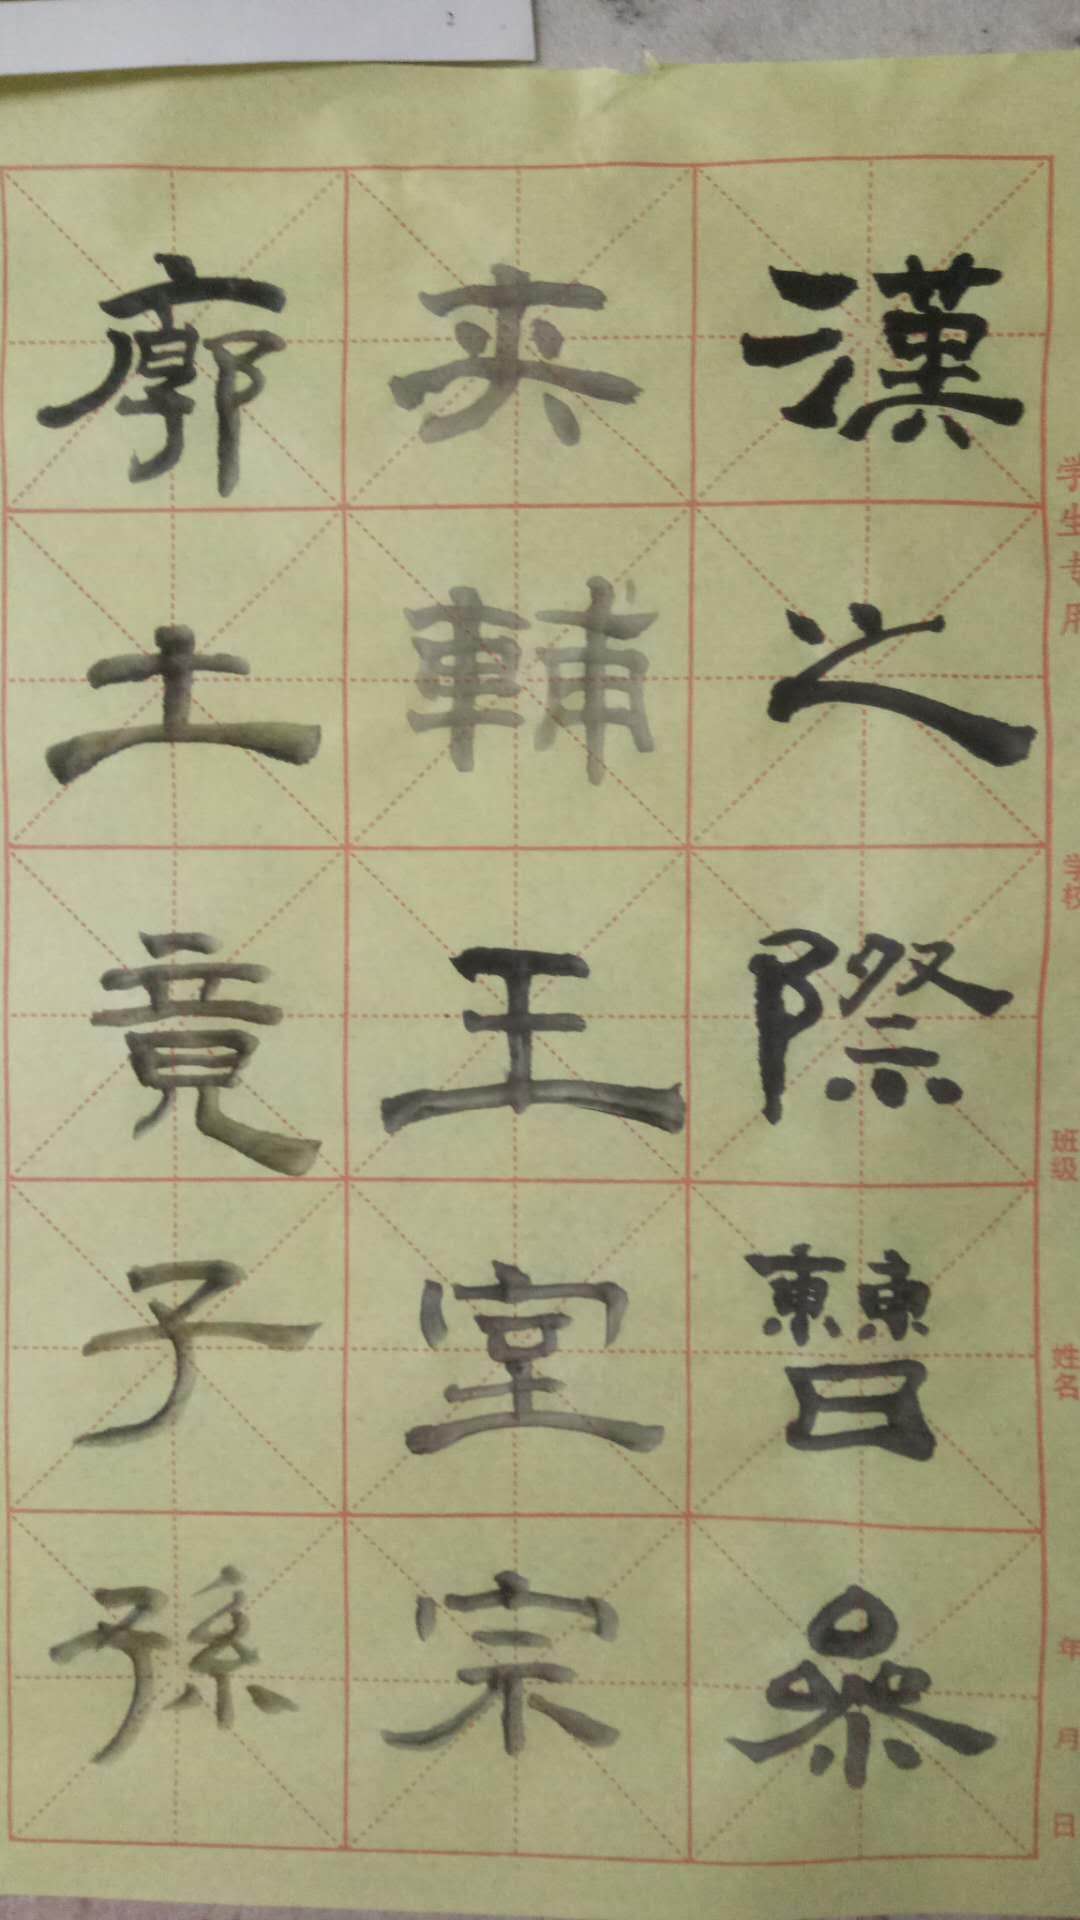 学生专用 学校 班级 姓名 年 月 日
漢之際曹參
夾輔王室宗
廓土竟子孫